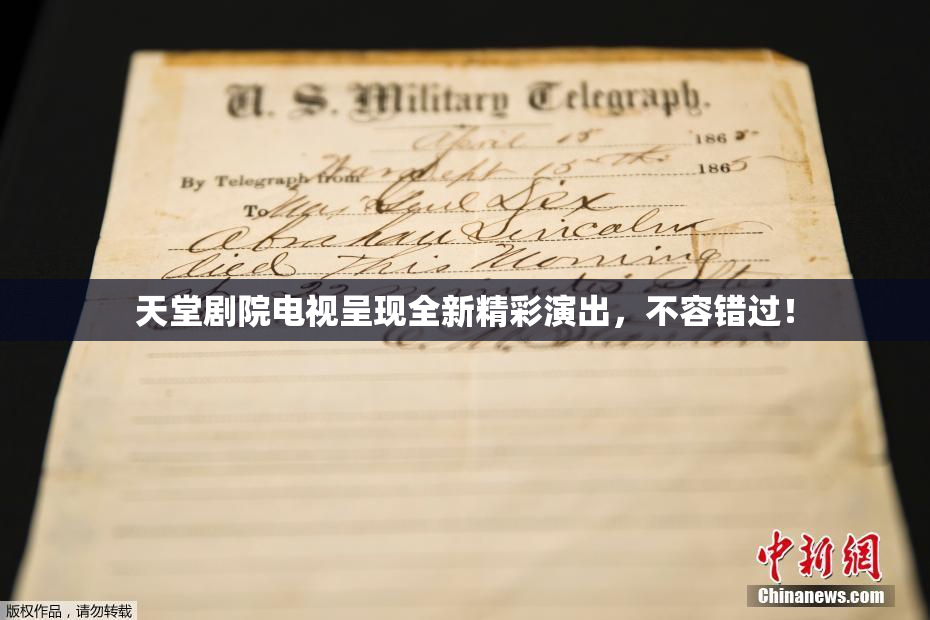 U. S. Military Telegraph.
April 15 1865.
By Telegraph from War Dept 15th 1865
To Maj Genl Dix
Abraham Lincoln
died This Morning
at 22 minutes after
天堂剧院电视呈现全新精彩演出，不容错过！
E. M. Stanton
中新網
Chinanews.com
版权作品，请勿转载